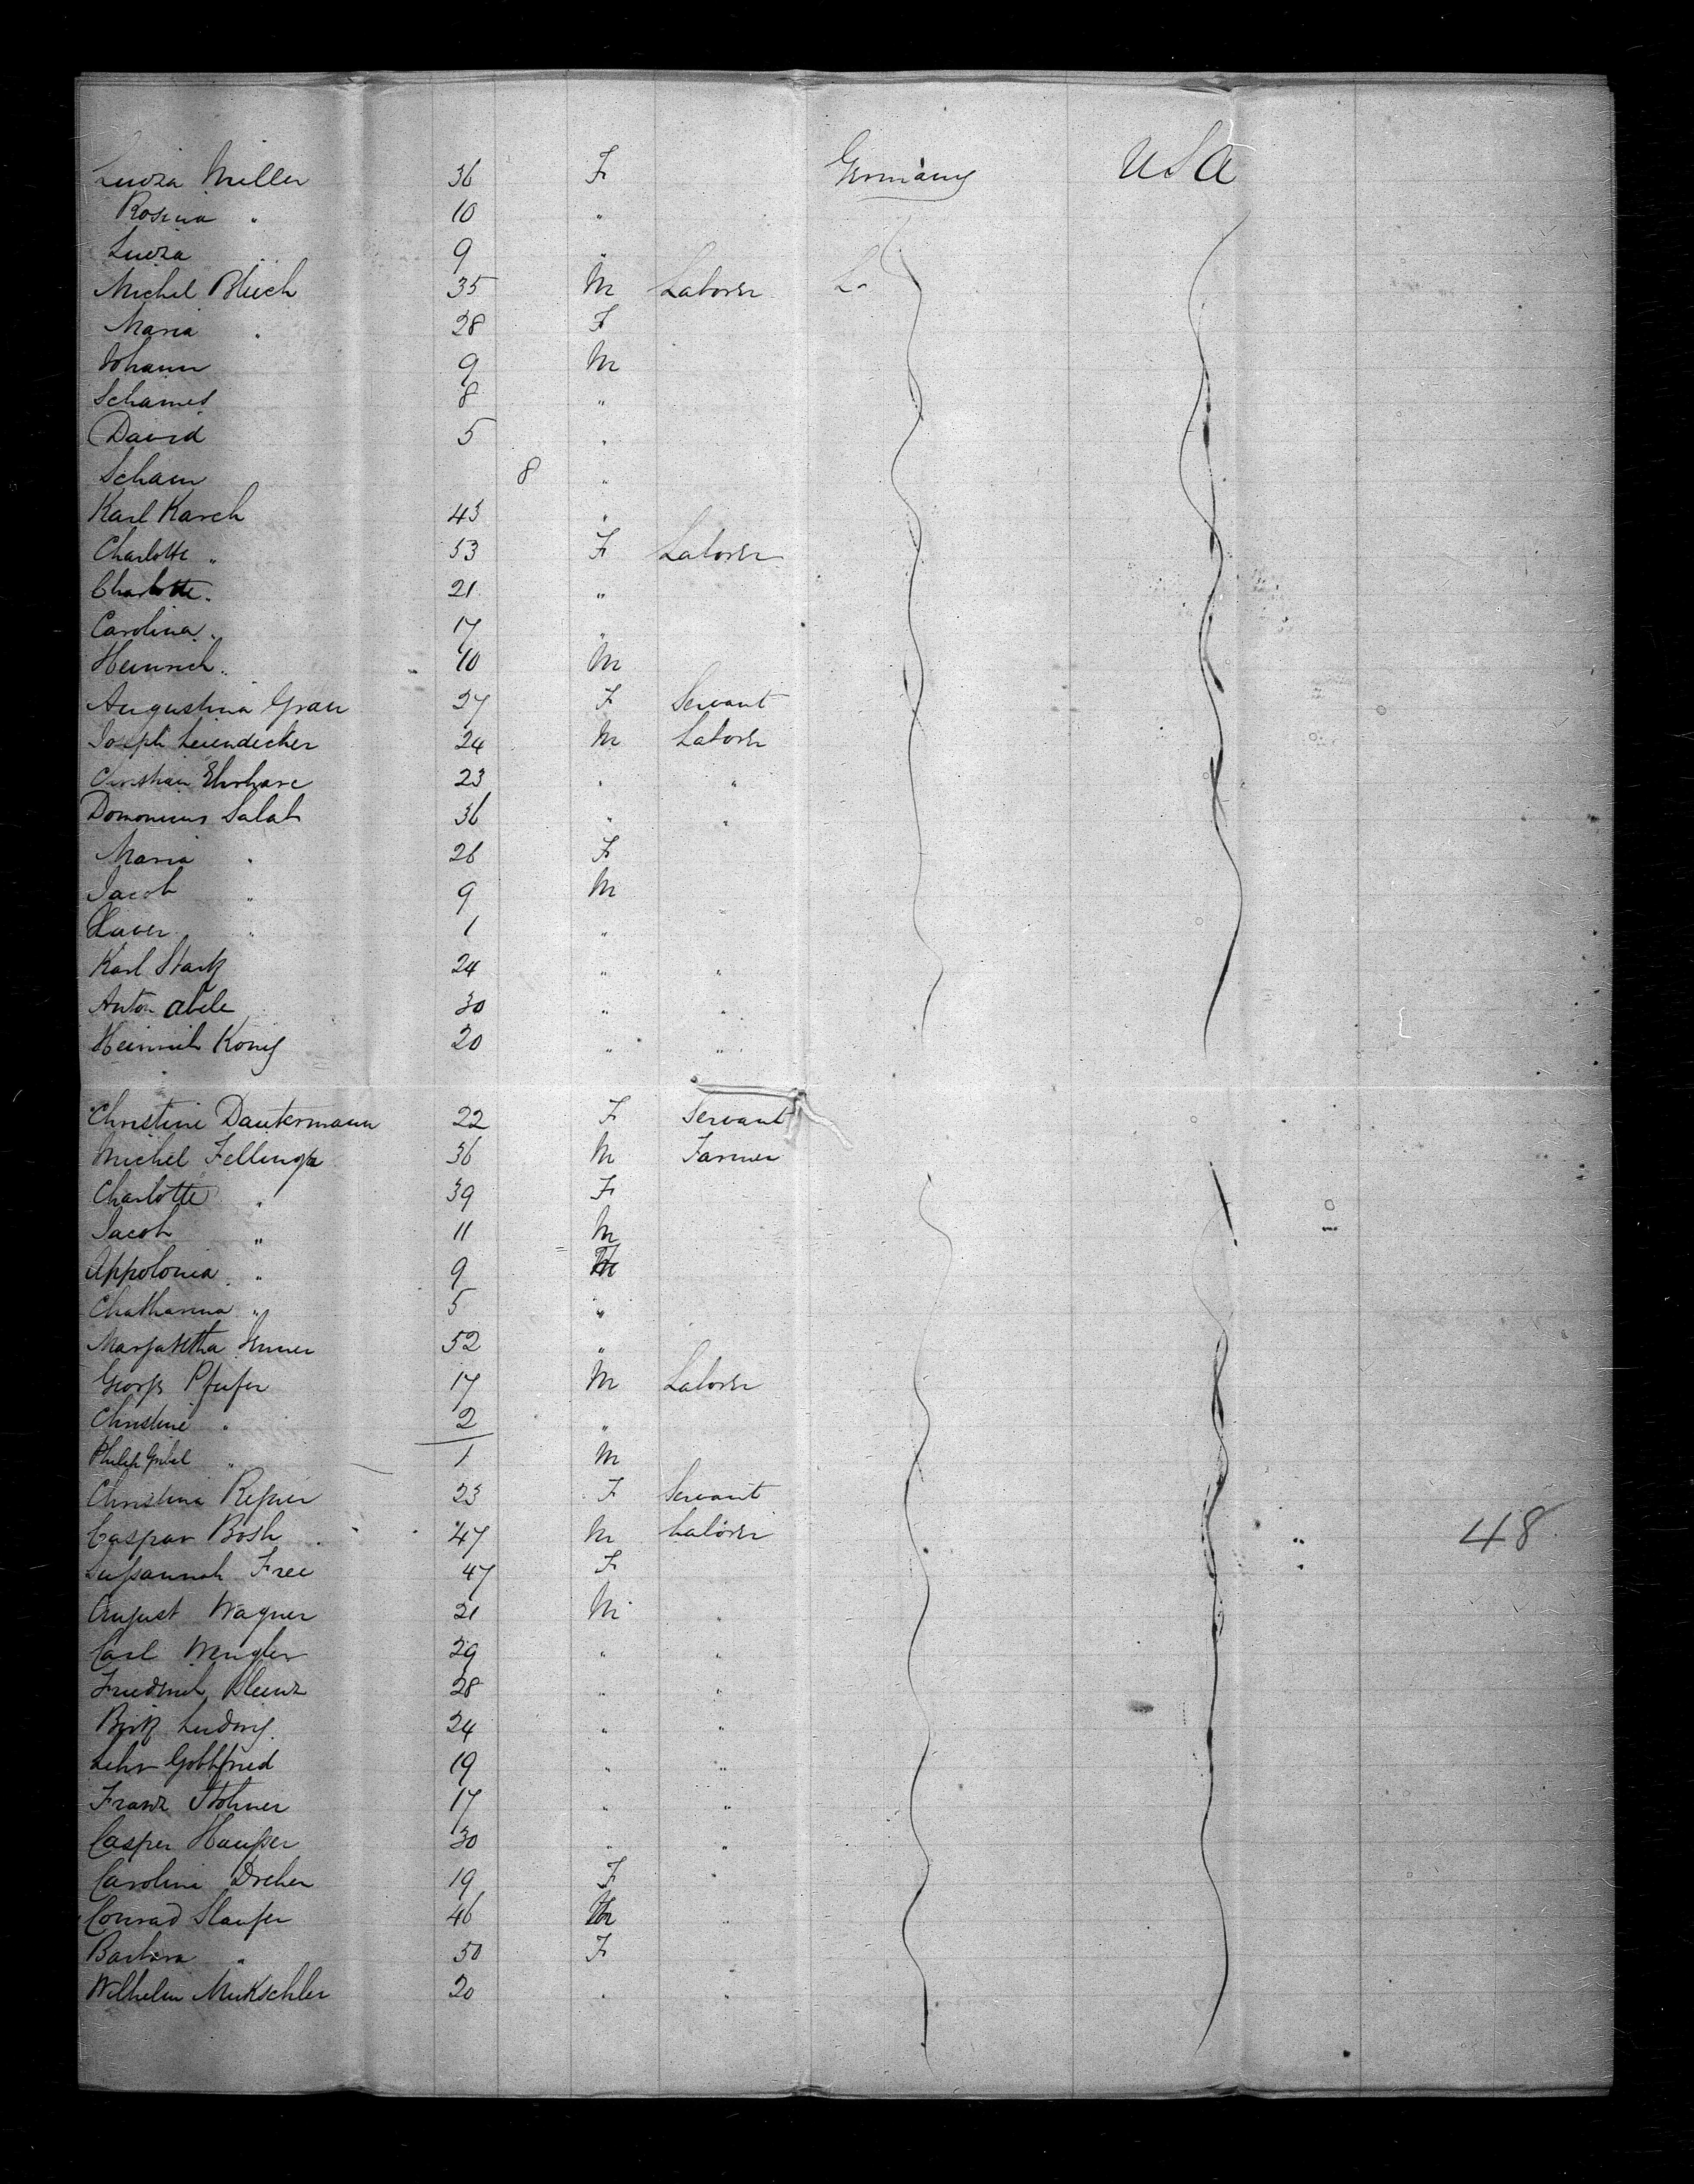 Luoza Miller 36 F Germany USA
Rosina " 10 "
Luoza " 9 "
Michel Bleich 35 M Laborer
Maria " 28 F
Johann 9 M
Schames 8 "
David 5 "
Scham 8 "
Karl Karch 43 "
Charlotte " 53 F Laborer
Charlotte " 21 "
Carolina " 17 "
Heinrich " 10 M
Augustina Grau 27 F Servant
Joseph Leiendecker 24 M Laborer
Christian 23 " "
Salab 36 " "
Maria " 26 F
Jacob " 9 M
Xaver " 1 "
Karl Stark 24 " "
Anton Abele 30 " "
Heinrich Konig 20 " "
Christine Dautermann 22 F Servant
Michel 36 M Farmer
Charlotte " 39 F
Jacob " 11 M
Appolonia " 9
Chatharina " 5 "
Margaretha 52 "
Georg Pfeifer 17 M Laborer
Christine " 2 "
Philip " 1 M
Christina 23 F Servant
Caspar Bosh 47 M Laborer 48
Sussannah Free 47 F
August Wagner 21 M "
Carl Wengler 29 " "
Friedrich 28 " "
Birk Ludwig 24 " "
Lehr Gottfried 19 " "
Franz 17 " "
Casper Hausser 30 " "
Carolina Dreher 19 F "
Conrad 46 M "
Barbara " 50 F
Wilhelm 20 " "